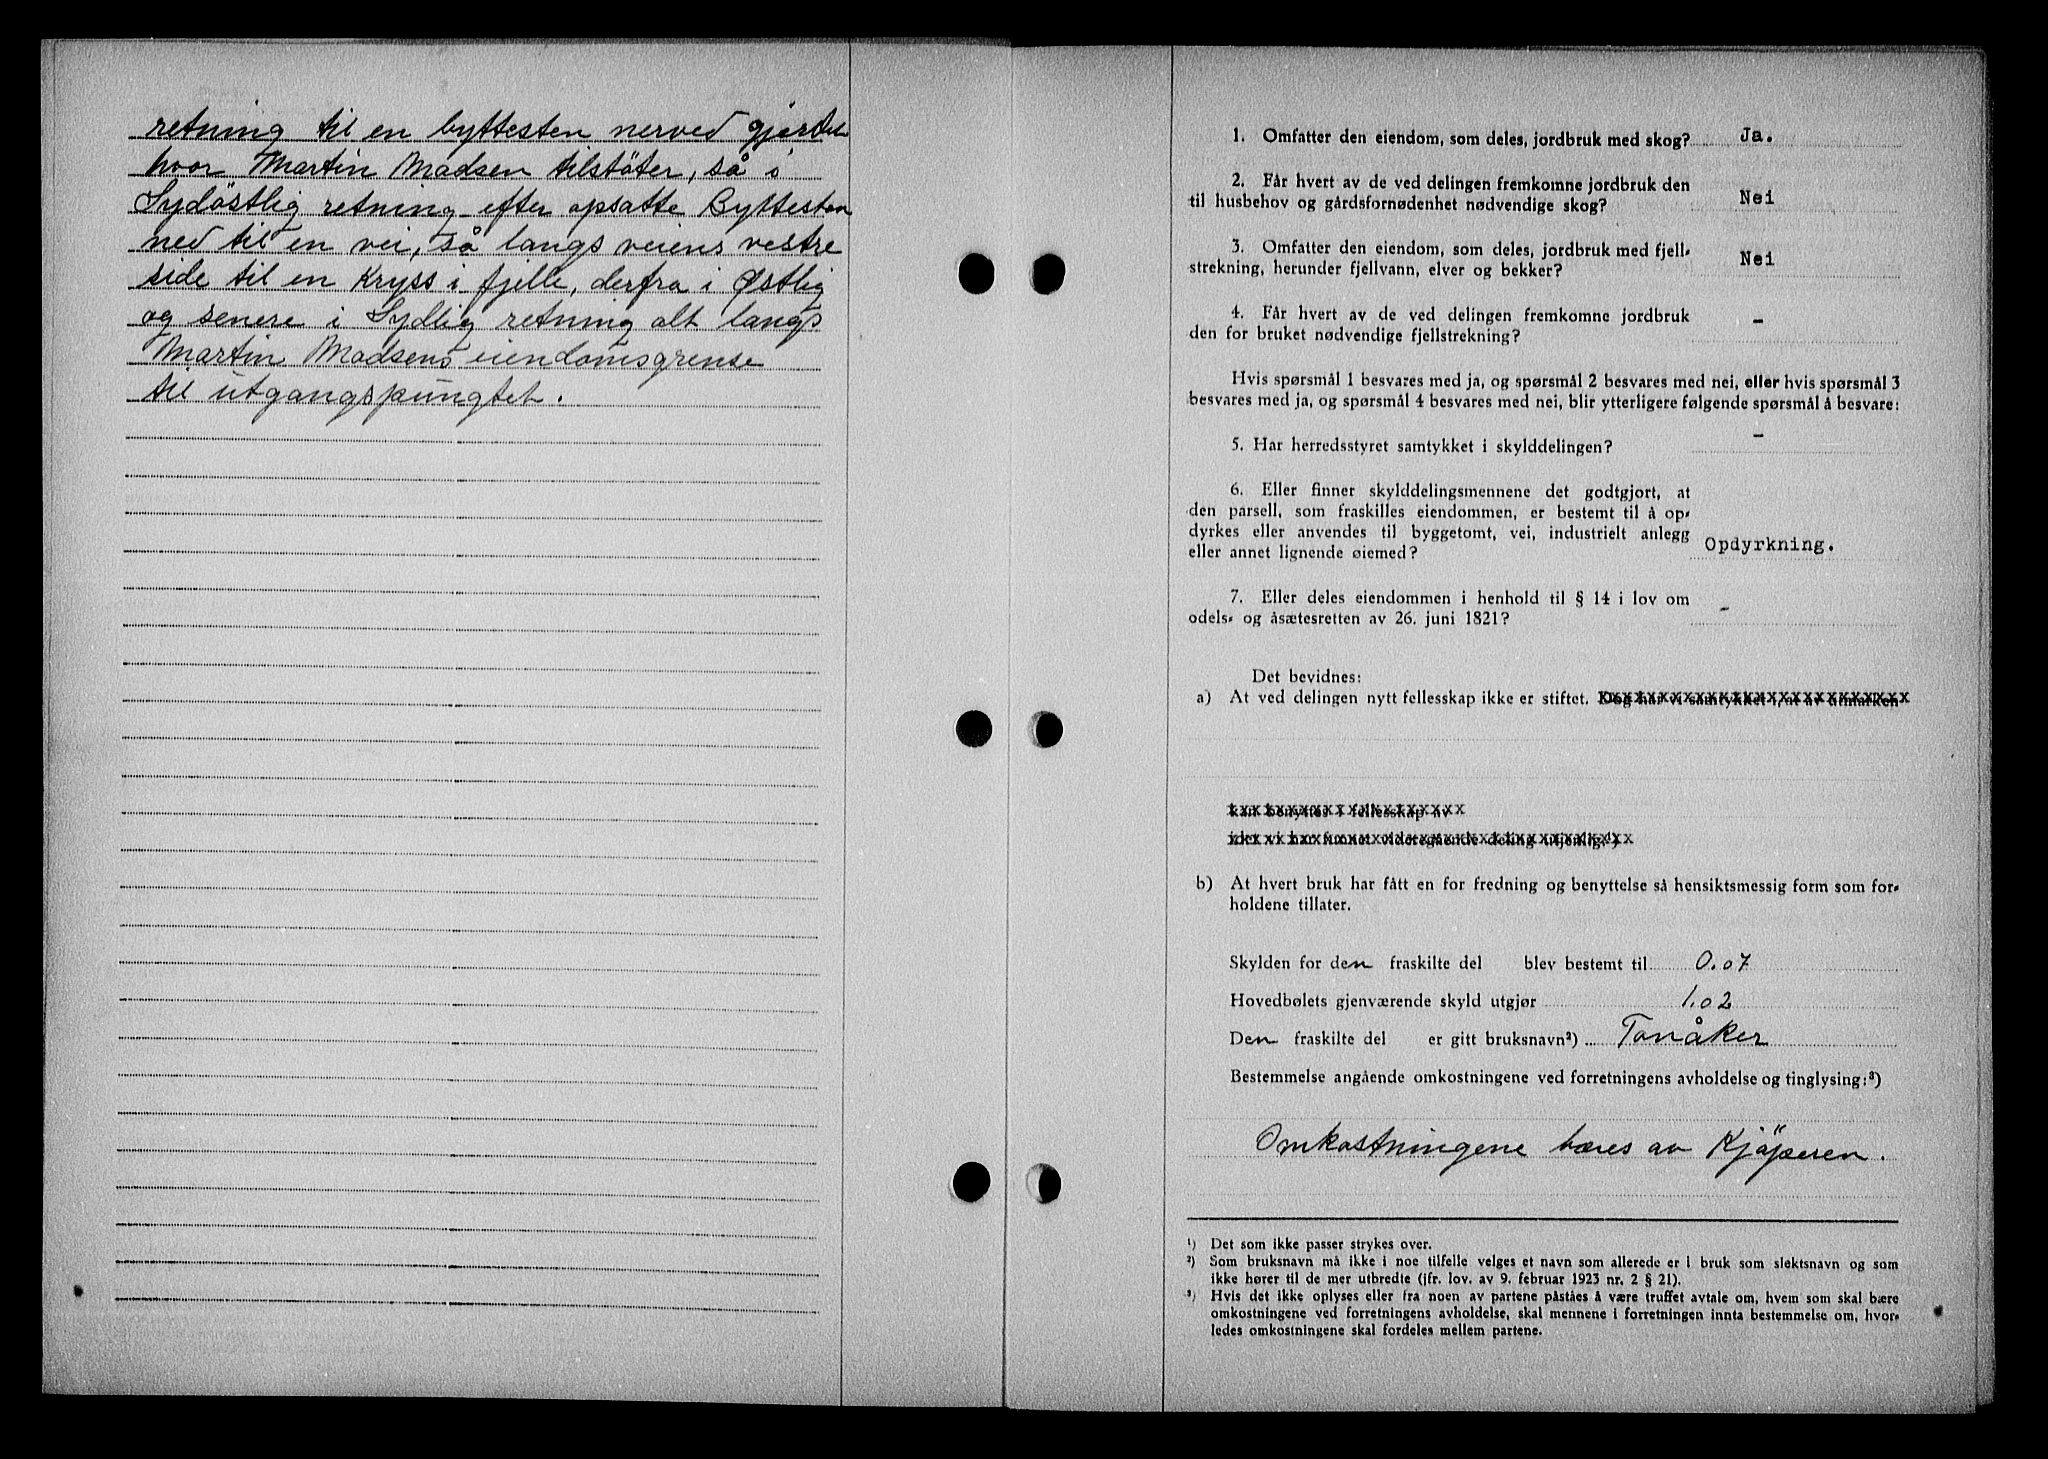 retning til en byttesten nerved gjerdet
hvor Martin Madsen tilstöter, så i
Sydöstlig retning efter opsatte Byttesten
ned til en vei, så langs veiens vestre
side til en Kryss i fjelle, derfra i Østlig
og senere i Sydlig retning alt langs
Martin Madsens eiendomsgrense
til utgangspungtet.
1. Omfatter den eiendom, som deles, jordbruk med skog? Ja.
2. Får hvert av de ved delingen fremkomne jordbruk den
til husbehov og gårdsfornødenhet nødvendige skog? Nei
3. Omfatter den eiendom, som deles, jordbruk med fjell-
strekning, herunder fjellvann, elver og bekker? Nei
4. Får hvert av de ved delingen fremkomne jordbruk
den for bruket nødvendige fjellstrekning? –
Hvis spørsmål 1 besvares med ja, og spørsmål 2 besvares med nei, eller hvis spørsmål 3
besvares med ja, og spørsmål 4 besvares med nei, blir ytterligere følgende spørsmål å besvare:
5. Har herredsstyret samtykket i skylddelingen? –
6. Eller finner skylddelingsmennene det godtgjort, at
den parsell, som fraskilles eiendommen, er bestemt til å op-
dyrkes eller anvendes til byggetomt, vei, industrielt anlegg
eller annet lignende øiemed? Opdyrkning.
7. Eller deles eiendommen i henhold til § 14 i lov om
odels- og åsætesretten av 26. juni 1821? –
Det bevidnes:
a) At ved delingen nytt fellesskap ikke er stiftet. Dog har vi samtykket i, at av utmarken
kan benyttes i fellesskap av
idet vi har funnet videregående deling utjenlig.¹)
b) At hvert bruk har fått en for fredning og benyttelse så hensiktsmessig form som for-
holdene tillater.
Skylden for den fraskilte del blev bestemt til 0.07
Hovedbølets gjenværende skyld utgjør 1.02
Den fraskilte del er gitt bruksnavn²) Tonåker
Bestemmelse angående omkostningene ved forretningens avholdelse og tinglysing:³)
Omkostningene bæres av Kjöperen.
¹) Det som ikke passer strykes over.
²) Som bruksnavn må ikke i noe tilfelle velges et navn som allerede er i bruk som slektsnavn og som
ikke hører til de mer utbredte (jfr. lov. av 9. februar 1923 nr. 2 § 21).
³) Hvis det ikke oplyses eller fra noen av partene påståes å være truffet avtale om, hvem som skal bære
omkostningene ved forretningens avholdelse, skal mennene i forretningen innta bestemmelse om, hvor-
ledes omkostningene skal fordeles mellem partene.